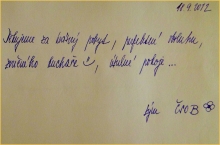 18.9.2012
Děkujeme za krásný pobyt, perfektní obsluhu,
kuchaře, útulné pokoje ...
tým ČSOB